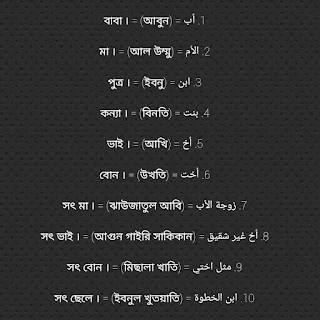 বাবা । = (আবুন) = أب .1
মা । = (আল উম্মু) = الأم .2
পুত্র । = (ইবনু) = ابن .3
কন্যা । = (বিনতি) = بنت .4
ভাই । = (আখি) = أخ .5
বোন । = (উখতি) = أخت .6
সৎ মা । = (ঝাউজাতুল আবি) = زوجة الأب .7
সৎ ভাই । = (আগুন গাইরি সাকিকান) = أخ غير شقيق .8
সৎ বোন । = (মিছালা খাতি) = مثل اختي .9
সৎ ছেলে । = (ইবনুল খুতয়াতি) = ابن الخطوة .10